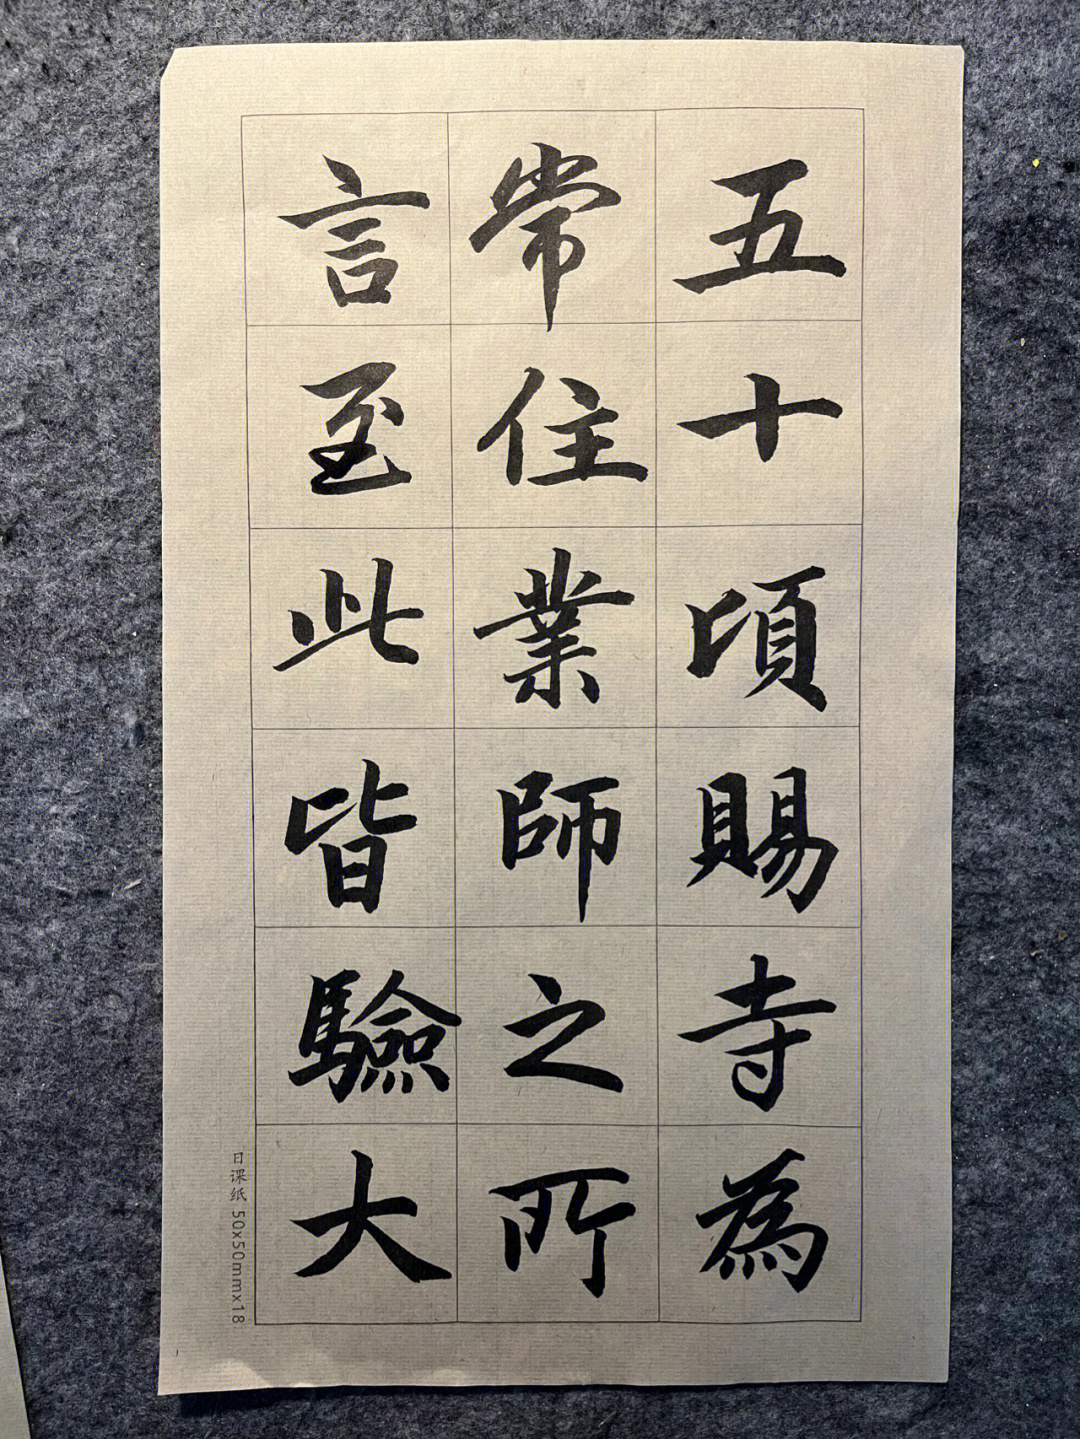 五十頃賜寺為
常住業師之所
言至此皆驗大
日课纸 50x50mmx18